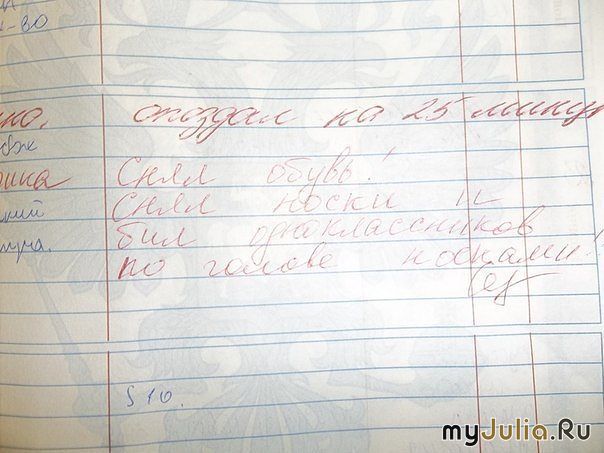 -80
опоздал на 25 минут
Снял обувь!
Снял носки и
бил одноклассников
по голове носками!
§ 10.
myJulia.Ru